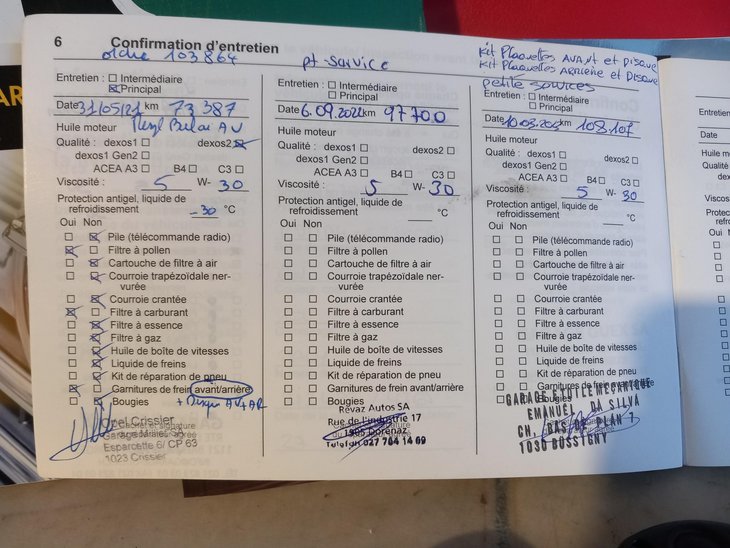 6 Confirmation d'entretien
103864
Entretien : Intermédiaire
Principal
Date 31/05/21 km 73387
Huile moteur
Qualité : dexos1 dexos2
dexos1 Gen2
ACEA A3 B4 C3
Viscosité : 5 W- 30
Protection antigel, liquide de
refroidissement -30 °C
Oui Non
Pile (télécommande radio)
Filtre à pollen
Cartouche de filtre à air
Courroie trapézoïdale ner-
vurée
Courroie crantée
Filtre à carburant
Filtre à essence
Filtre à gaz
Huile de boîte de vitesses
Liquide de freins
Kit de réparation de pneu
Garnitures de frein avant/arrière
Bougies + Disques AV+AR
Opel Crissier
Esparcette 6/ CP 63
1023 Crissier
pt-service
Entretien : Intermédiaire
Principal
Date 6.09.2022 km 97700
Huile moteur
Qualité : dexos1 dexos2
dexos1 Gen2
ACEA A3 B4 C3
Viscosité : 5 W- 30
Protection antigel, liquide de
refroidissement °C
Oui Non
Pile (télécommande radio)
Filtre à pollen
Cartouche de filtre à air
Courroie trapézoïdale ner-
vurée
Courroie crantée
Filtre à carburant
Filtre à essence
Filtre à gaz
Huile de boîte de vitesses
Liquide de freins
Kit de réparation de pneu
Garnitures de frein avant/arrière
Bougies
Revaz Autos SA
Rue de l'industrie 17
1905 Dorénaz
Telefon 027 764 14 69
Kit Plaquettes AVANT et Disque
Kit Plaquettes ARRIERE et Disque
petite services
Entretien : Intermédiaire
Principal
Date km 108.107
Huile moteur
Qualité : dexos1 dexos2
dexos1 Gen2
ACEA A3 B4 C3
Viscosité : 5 W- 30
Protection antigel, liquide de
refroidissement °C
Oui Non
Pile (télécommande radio)
Filtre à pollen
Cartouche de filtre à air
Courroie trapézoïdale ner-
vurée
Courroie crantée
Filtre à carburant
Filtre à essence
Filtre à gaz
Huile de boîte de vitesses
Liquide de freins
Kit de réparation de pneu
Garnitures de frein avant/arrière
Bougies
EMANUEL DA SILVA
CH. PLAN 7
1030 BUSSIGNY
Entretien
Date
Huile m
Qualité
de
Viscosité
Protection
refroidiss
Oui Non